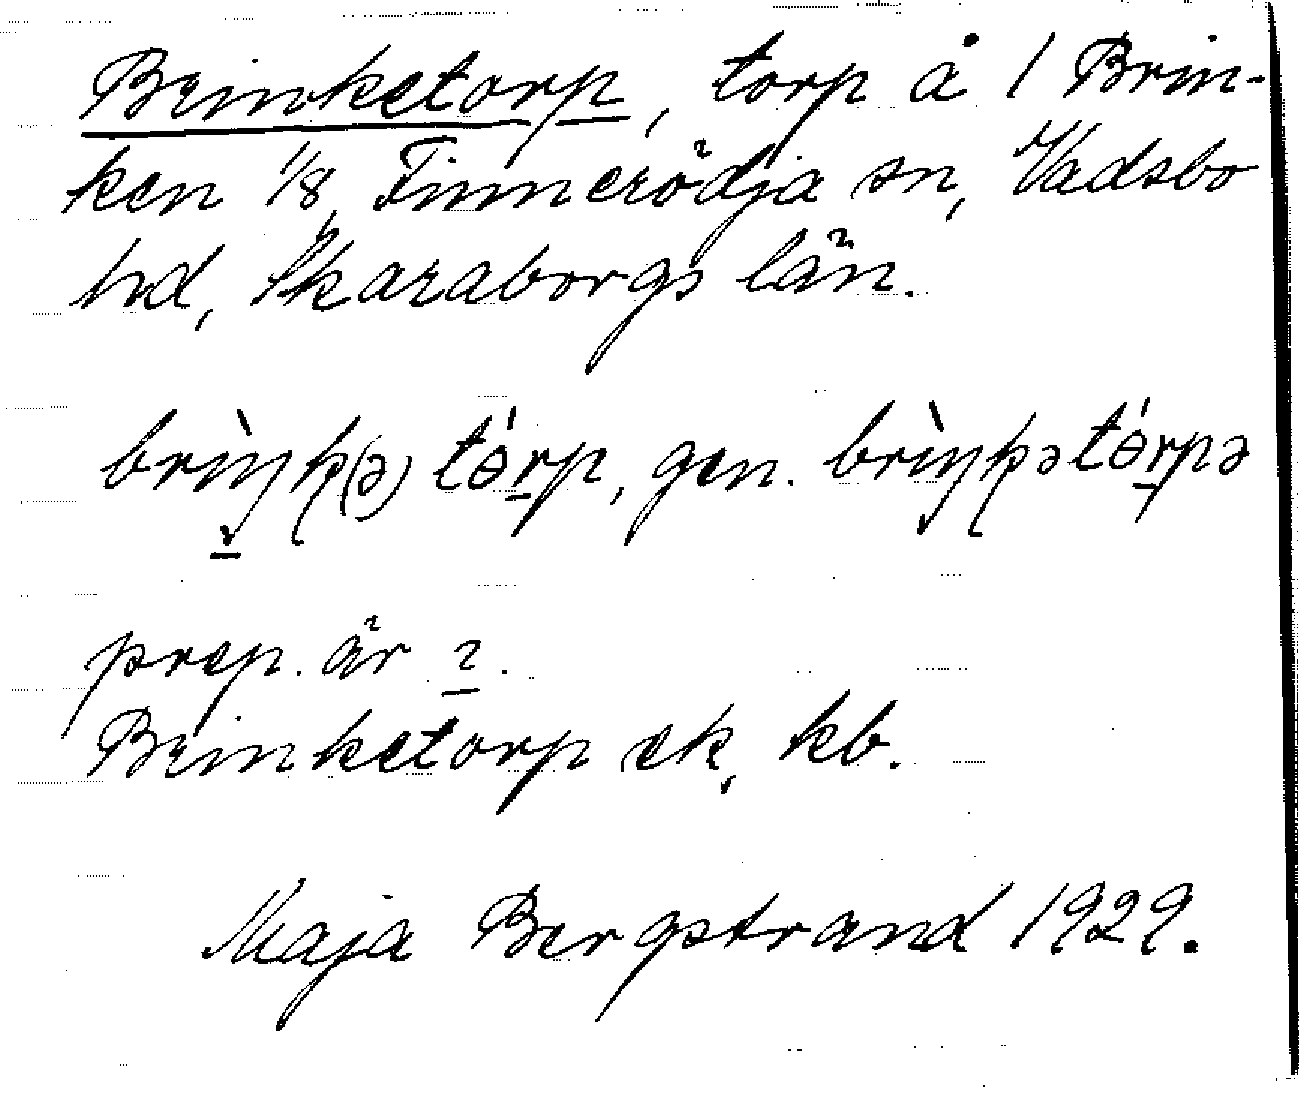 Brinketorp, torp å 1 Brin-
ken 1/8, Finnerödja sn, Vadsbo
hd, Skaraborgs län.
brìŋk(ə) tɵ́rp, gen. brìŋkətɵ́rpə
prep. är ɩ.
Brinketorp ek, kb.
Maja Bergstrand 1929.